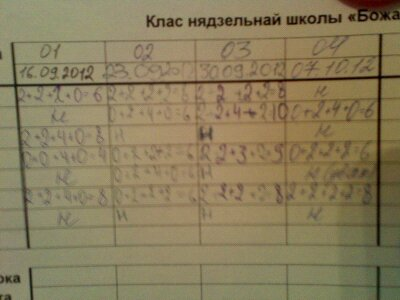 Клас нядзельнай школы «Божа
01 02 03 04
16.09.2012 23.09.201 30.09.2012 07.10.12
2+2+2+0=6 2+2+2+2=8 2+2+2+2=8 н
н 0+2+4+0=6 2+2+4+2=10 0+2+4+0=6
2+2+4+0=8 н н
0+0+4+0=4 0+2+2+2=6 2+2+3+2=9 0+2+2+2=6
н 0+2+2+2=6 н н
2+2+4+0=8 0+2+2+2=6 2+2+2+2=8 2+2+2+2=8
н н н н